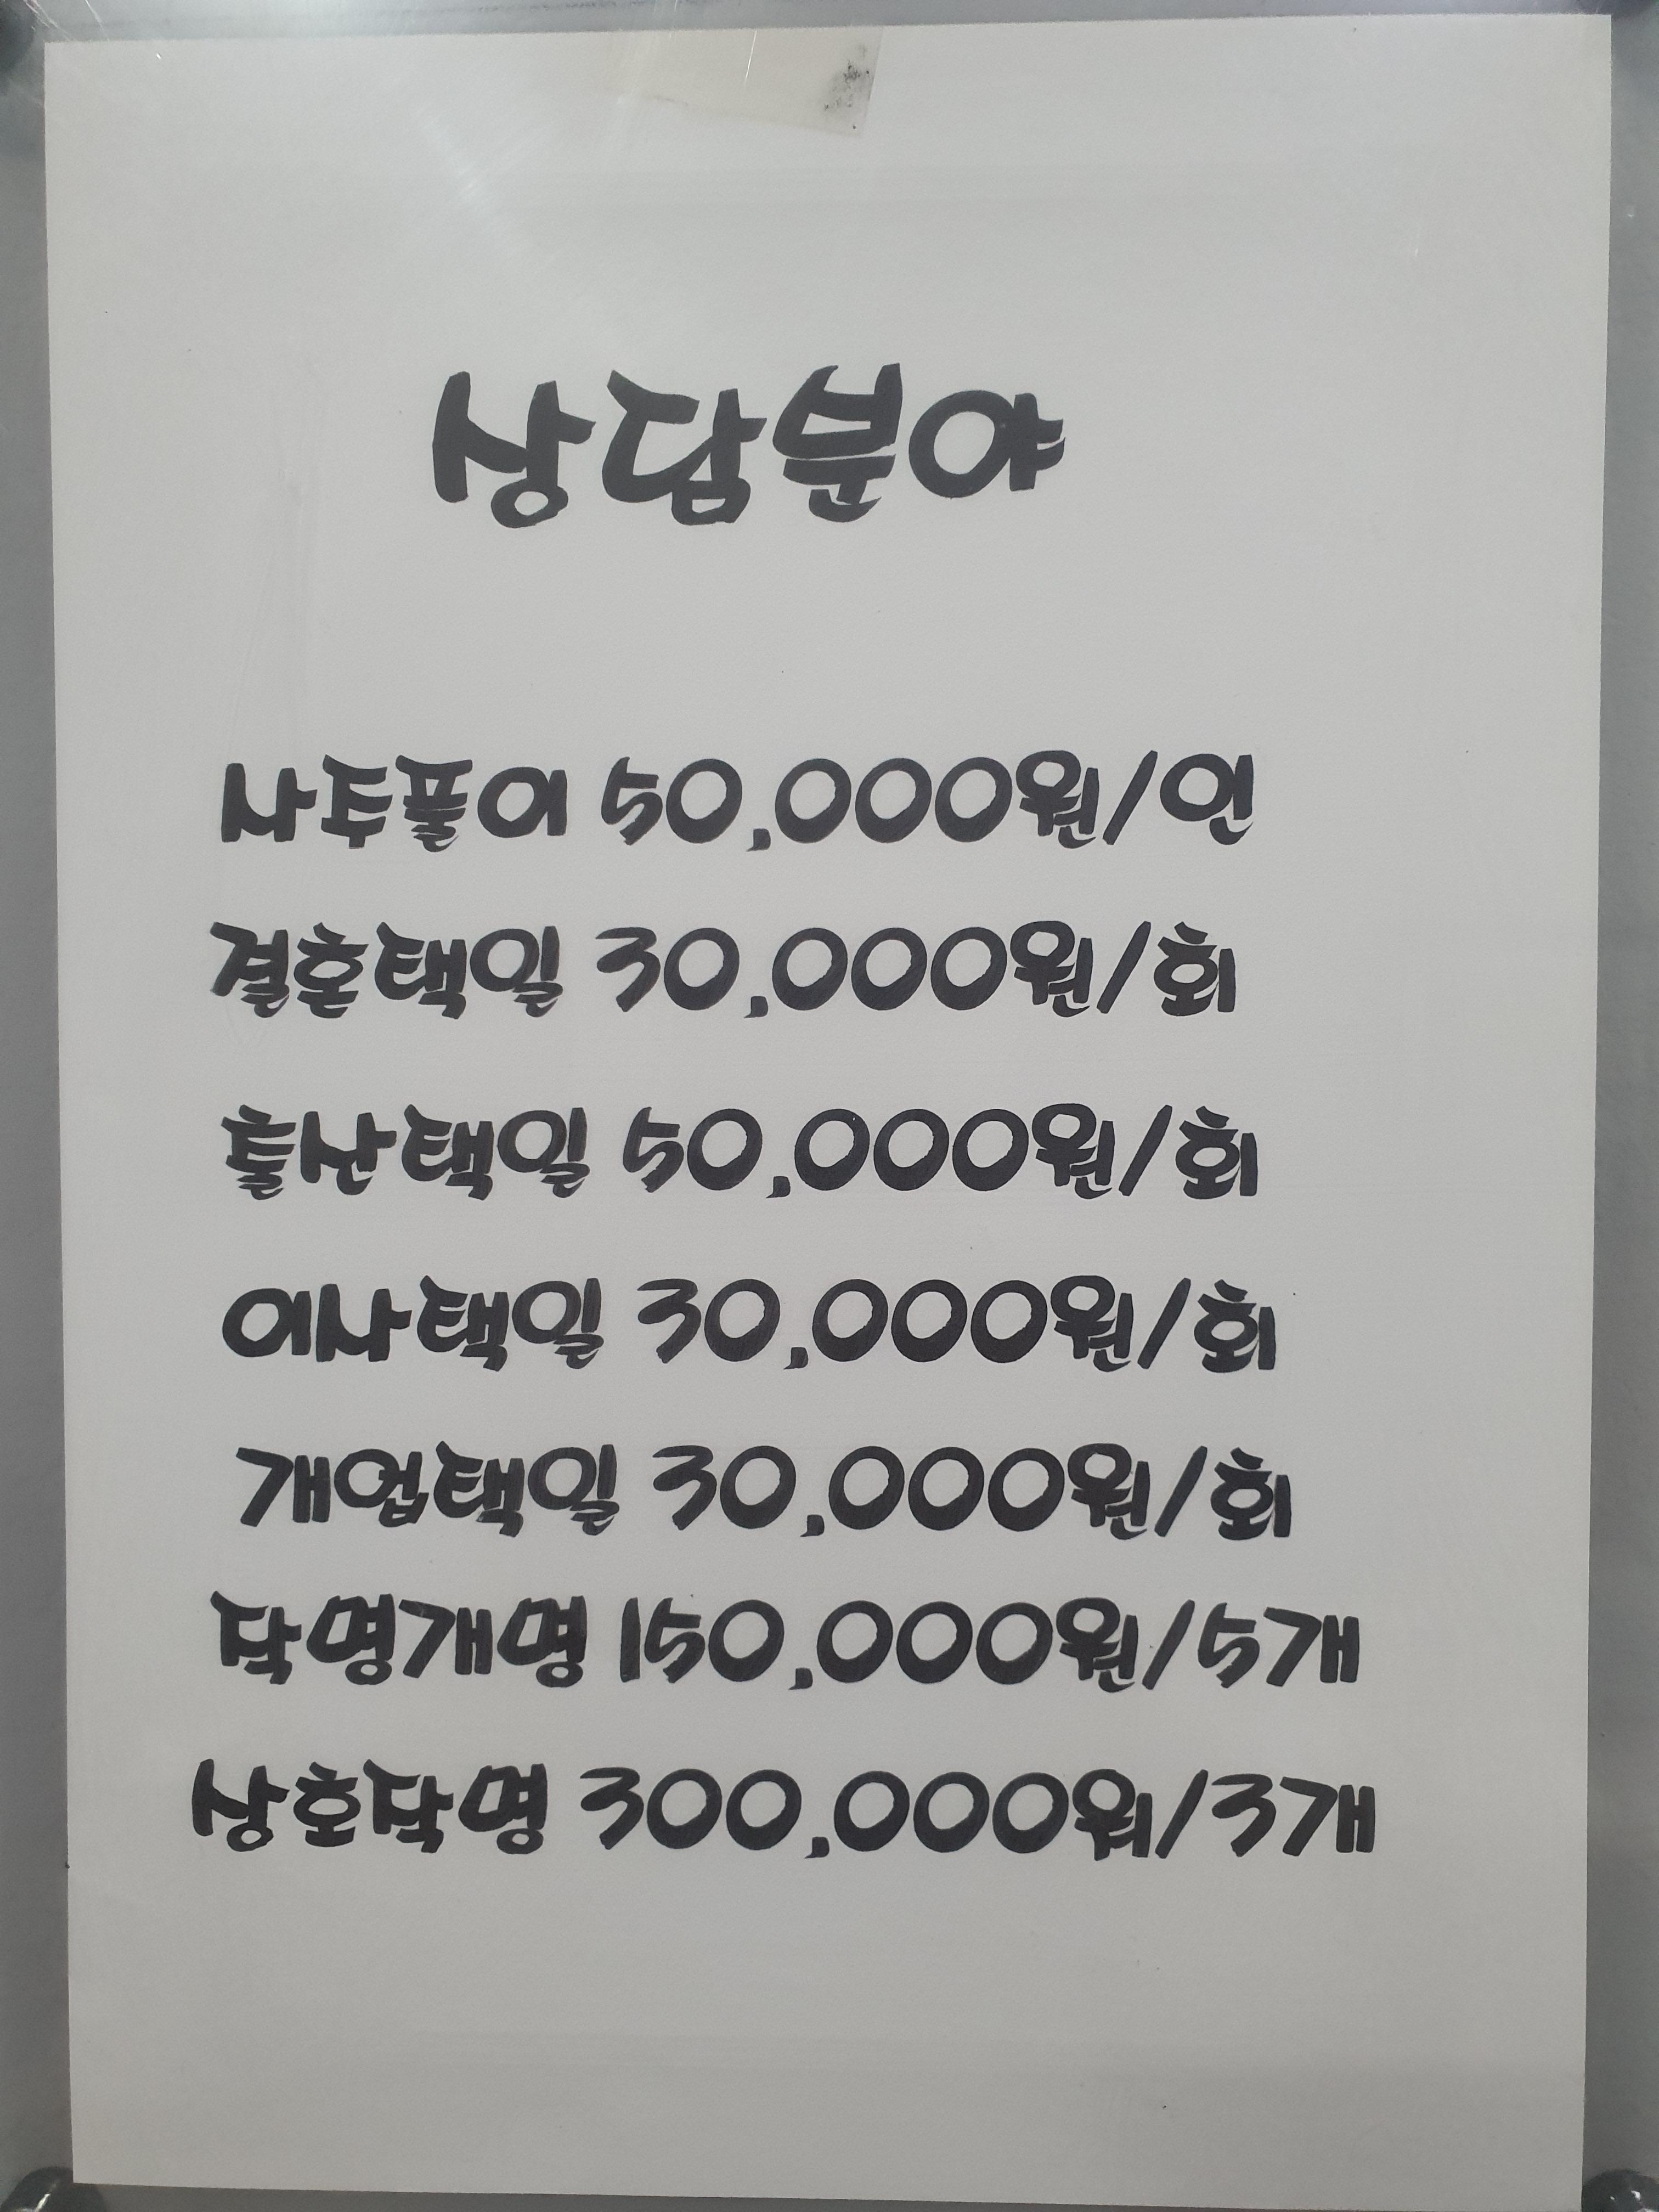 상담분야
사주풀이 50,000원/인
결혼택일 30,000원/회
출산택일 50,000원/회
이사택일 30,000원/회
개업택일 30,000원/회
작명개명 150,000원/5개
상호작명 300,000원/3개